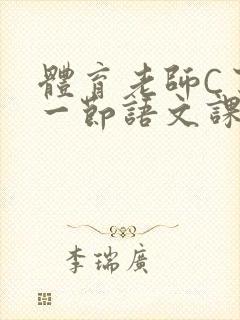 體育老師C
一節語文課
李瑞廣